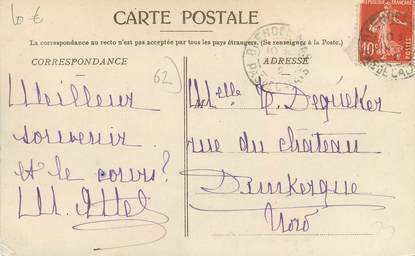 10 €
CARTE POSTALE
La correspondance au recto n'est pas acceptée par tous les pays étrangers. (Se renseigner à la Poste.)
CORRESPONDANCE
ADRESSE
62
Meilleur
souvenir
et le cours?
M.
Melle Dequeker
rue du château
Dunkerque
Nord
10
POSTES